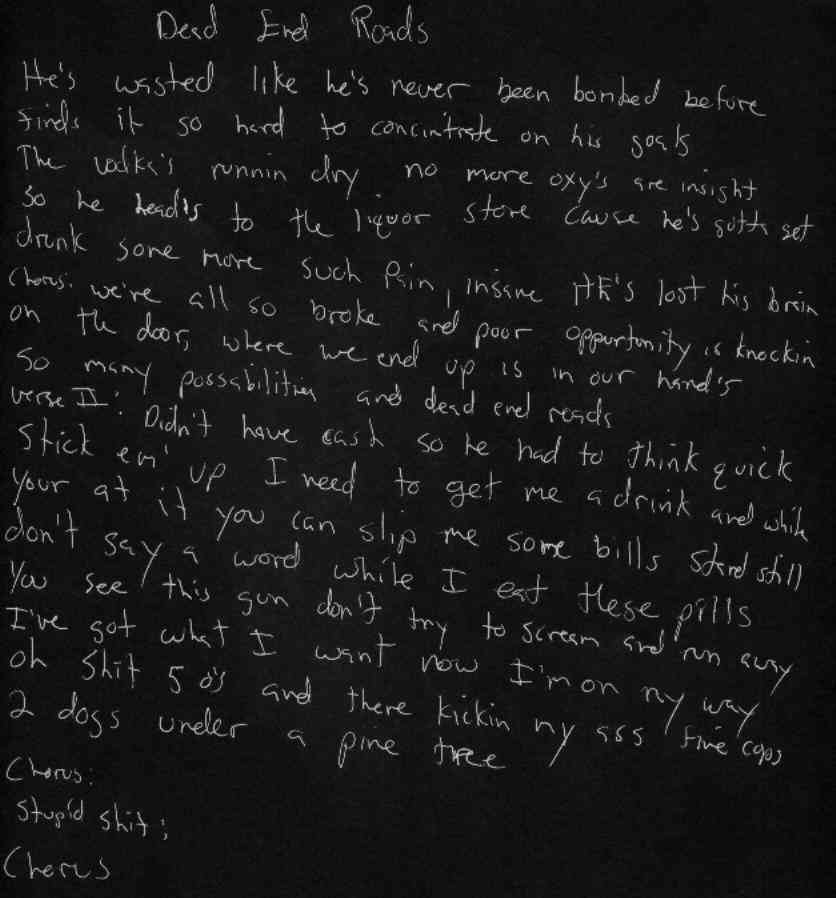 Dead End Roads
He's wasted like he's never been bombed before
finds it so hard to concintrate on his goals
The vodka's runnin dry no more oxy's are insight
So he head's to the liquor store cause he's gotta get
drunk some more such pain, insane he's lost his brain
Chorus: we're all so broke and poor oppurtunity is knockin
on the door, where we end up is in our hand's
So many possabilities and dead end roads
verse II: Didn't have cash so he had to think quick
Stick em' up I need to get me a drink and while
your at it you can slip me some bills stand still
don't say a word while I eat these pills
You see this gun don't try to scream and run away
I've got what I want now I'm on my way
oh shit 5 o's and there kickin my ass five cops
2 dogs under a pine tree
Chorus:
Stupid shit;
Chorus